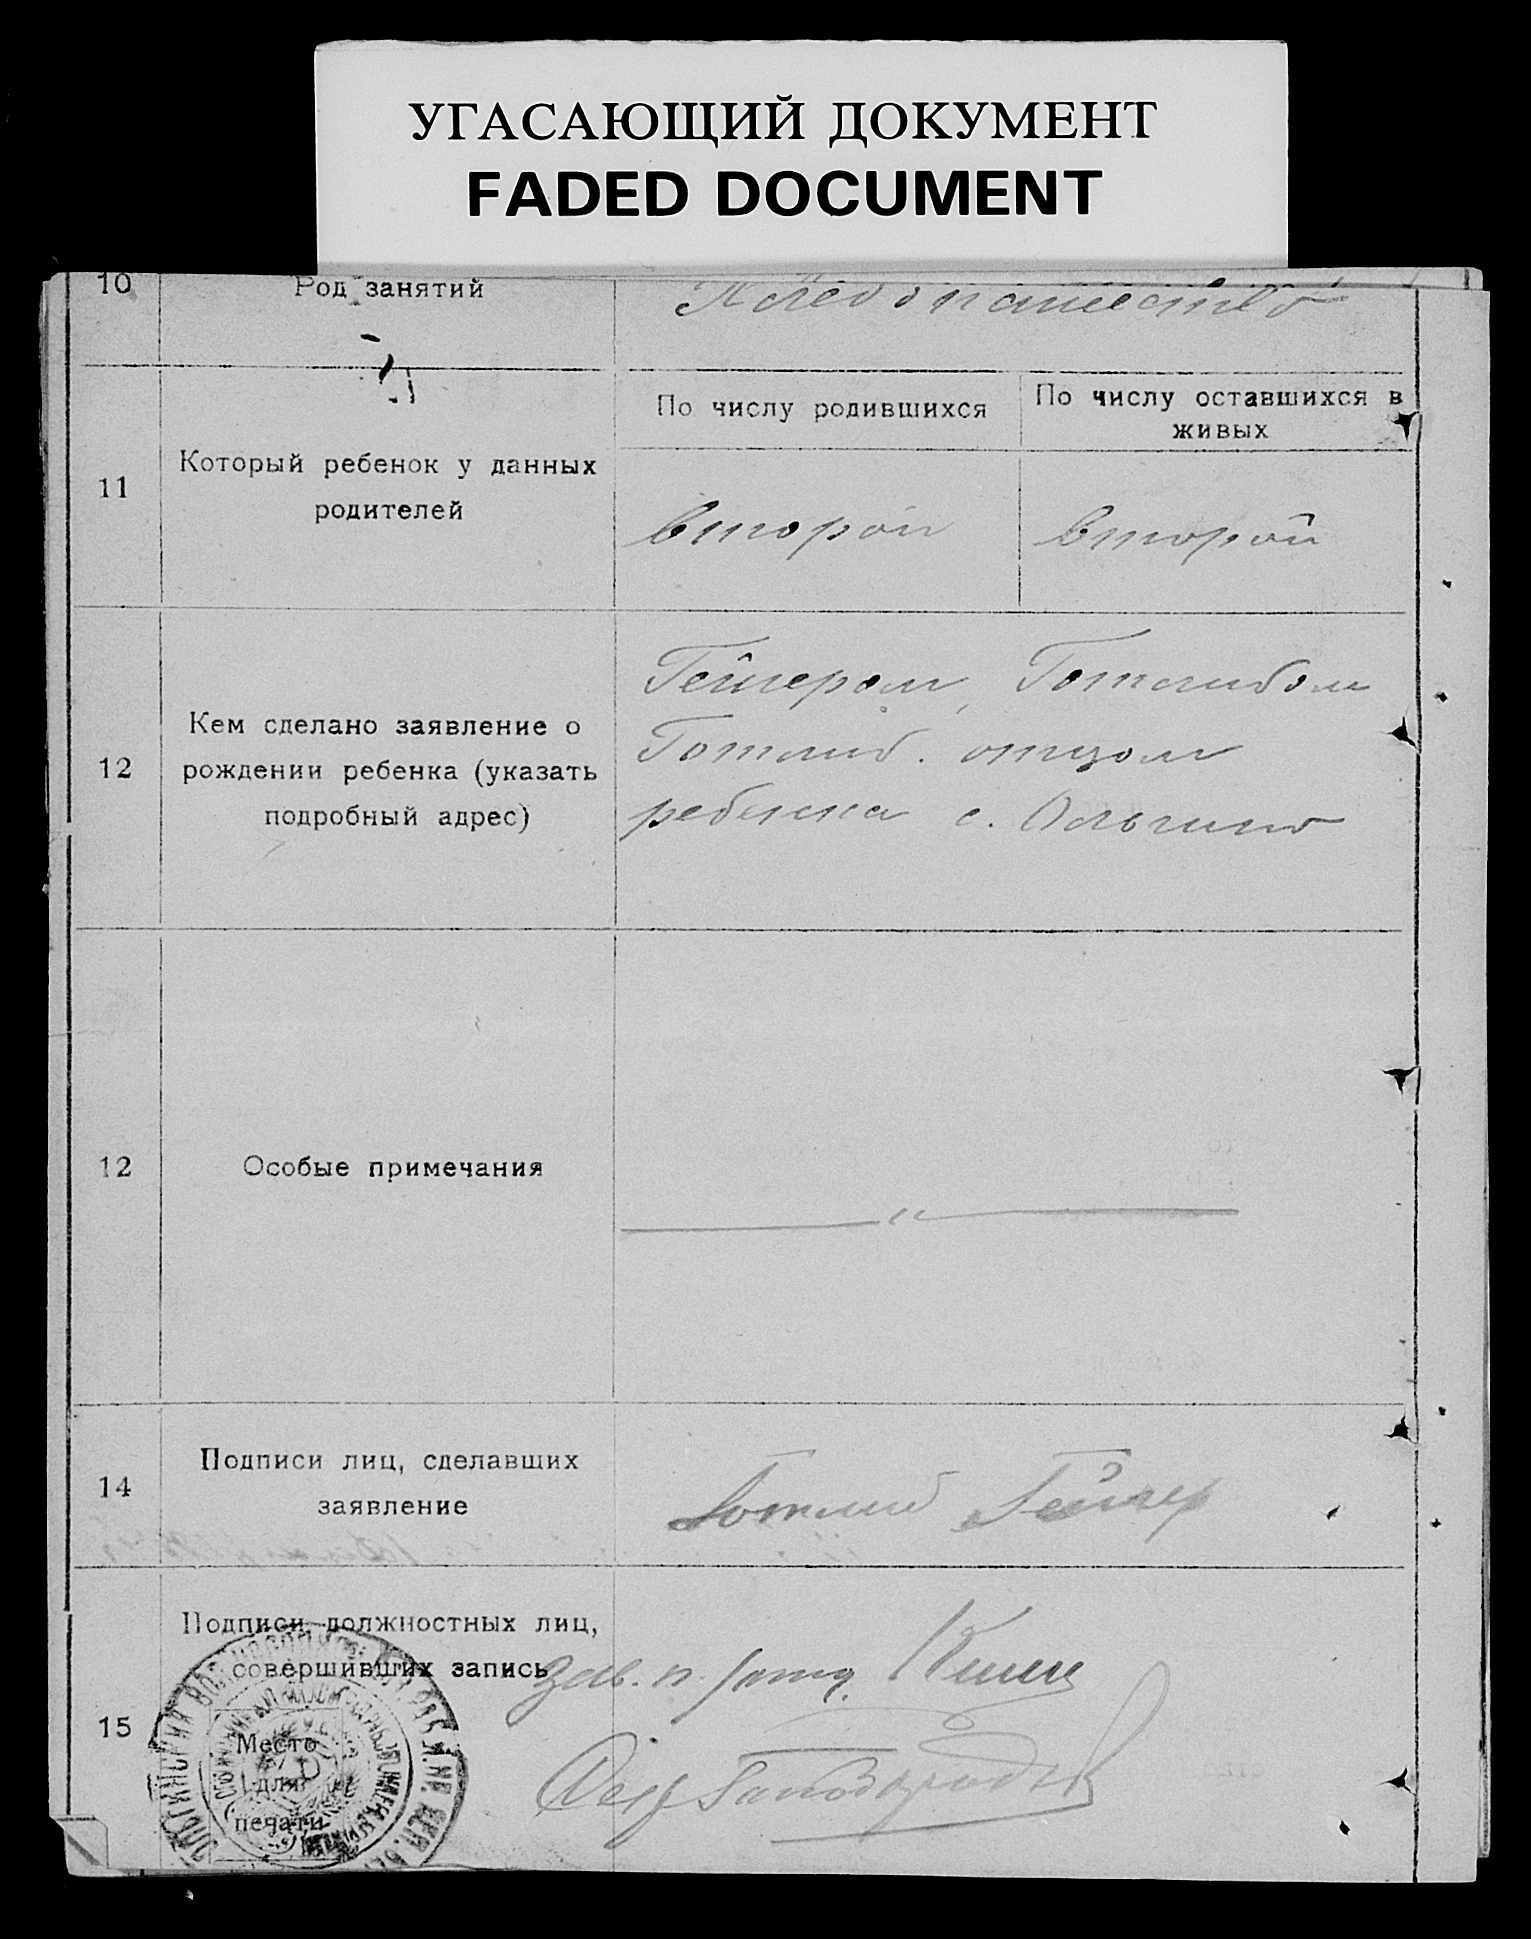 УГАСАЮЩИЙ ДОКУМЕНТ
FADED DOCUMENT
10 Род занятий Хлебопашество
По числу родившихся
По числу оставшихся в
живых
11
Который ребенок у данных
родителей
второй второй
12
Кем сделано заявление о
рождении ребенка (указать
подробный адрес)
Гейгером, Готлибом
Готлиб. отцом
ребенка с. Ольгино
12 Особые примечания
— " —
14
Подписи лиц, сделавших
заявление
Готлиб Гейгер
15
Подписи должностных лиц,
совершивших запись
Зав. п.
Место
для
печати